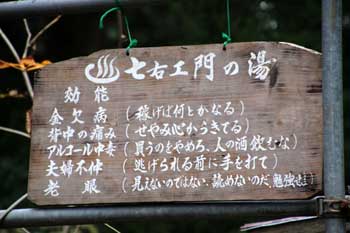 ♨七右エ門の湯
効能
金欠病 (稼げば何とかなる)
背中の痛み (せやみ心からきてる)
アルコール中毒 (買うのをやめろ、人の酒飲むな)
夫婦不仲 (逃げられる前に手を打て)
老眼 (見えないのではない、読めないのだ、勉強せよ)